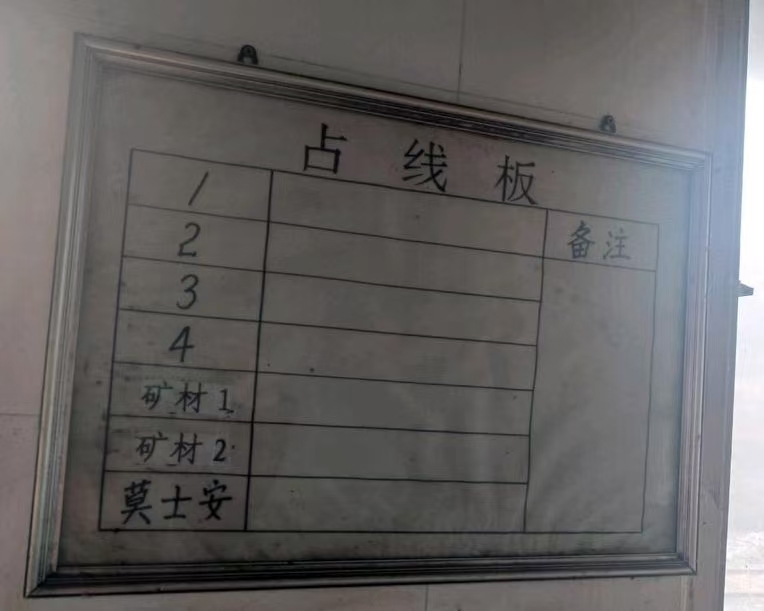 占线板
1
备注
2
3
4
矿材1
矿材2
莫士安